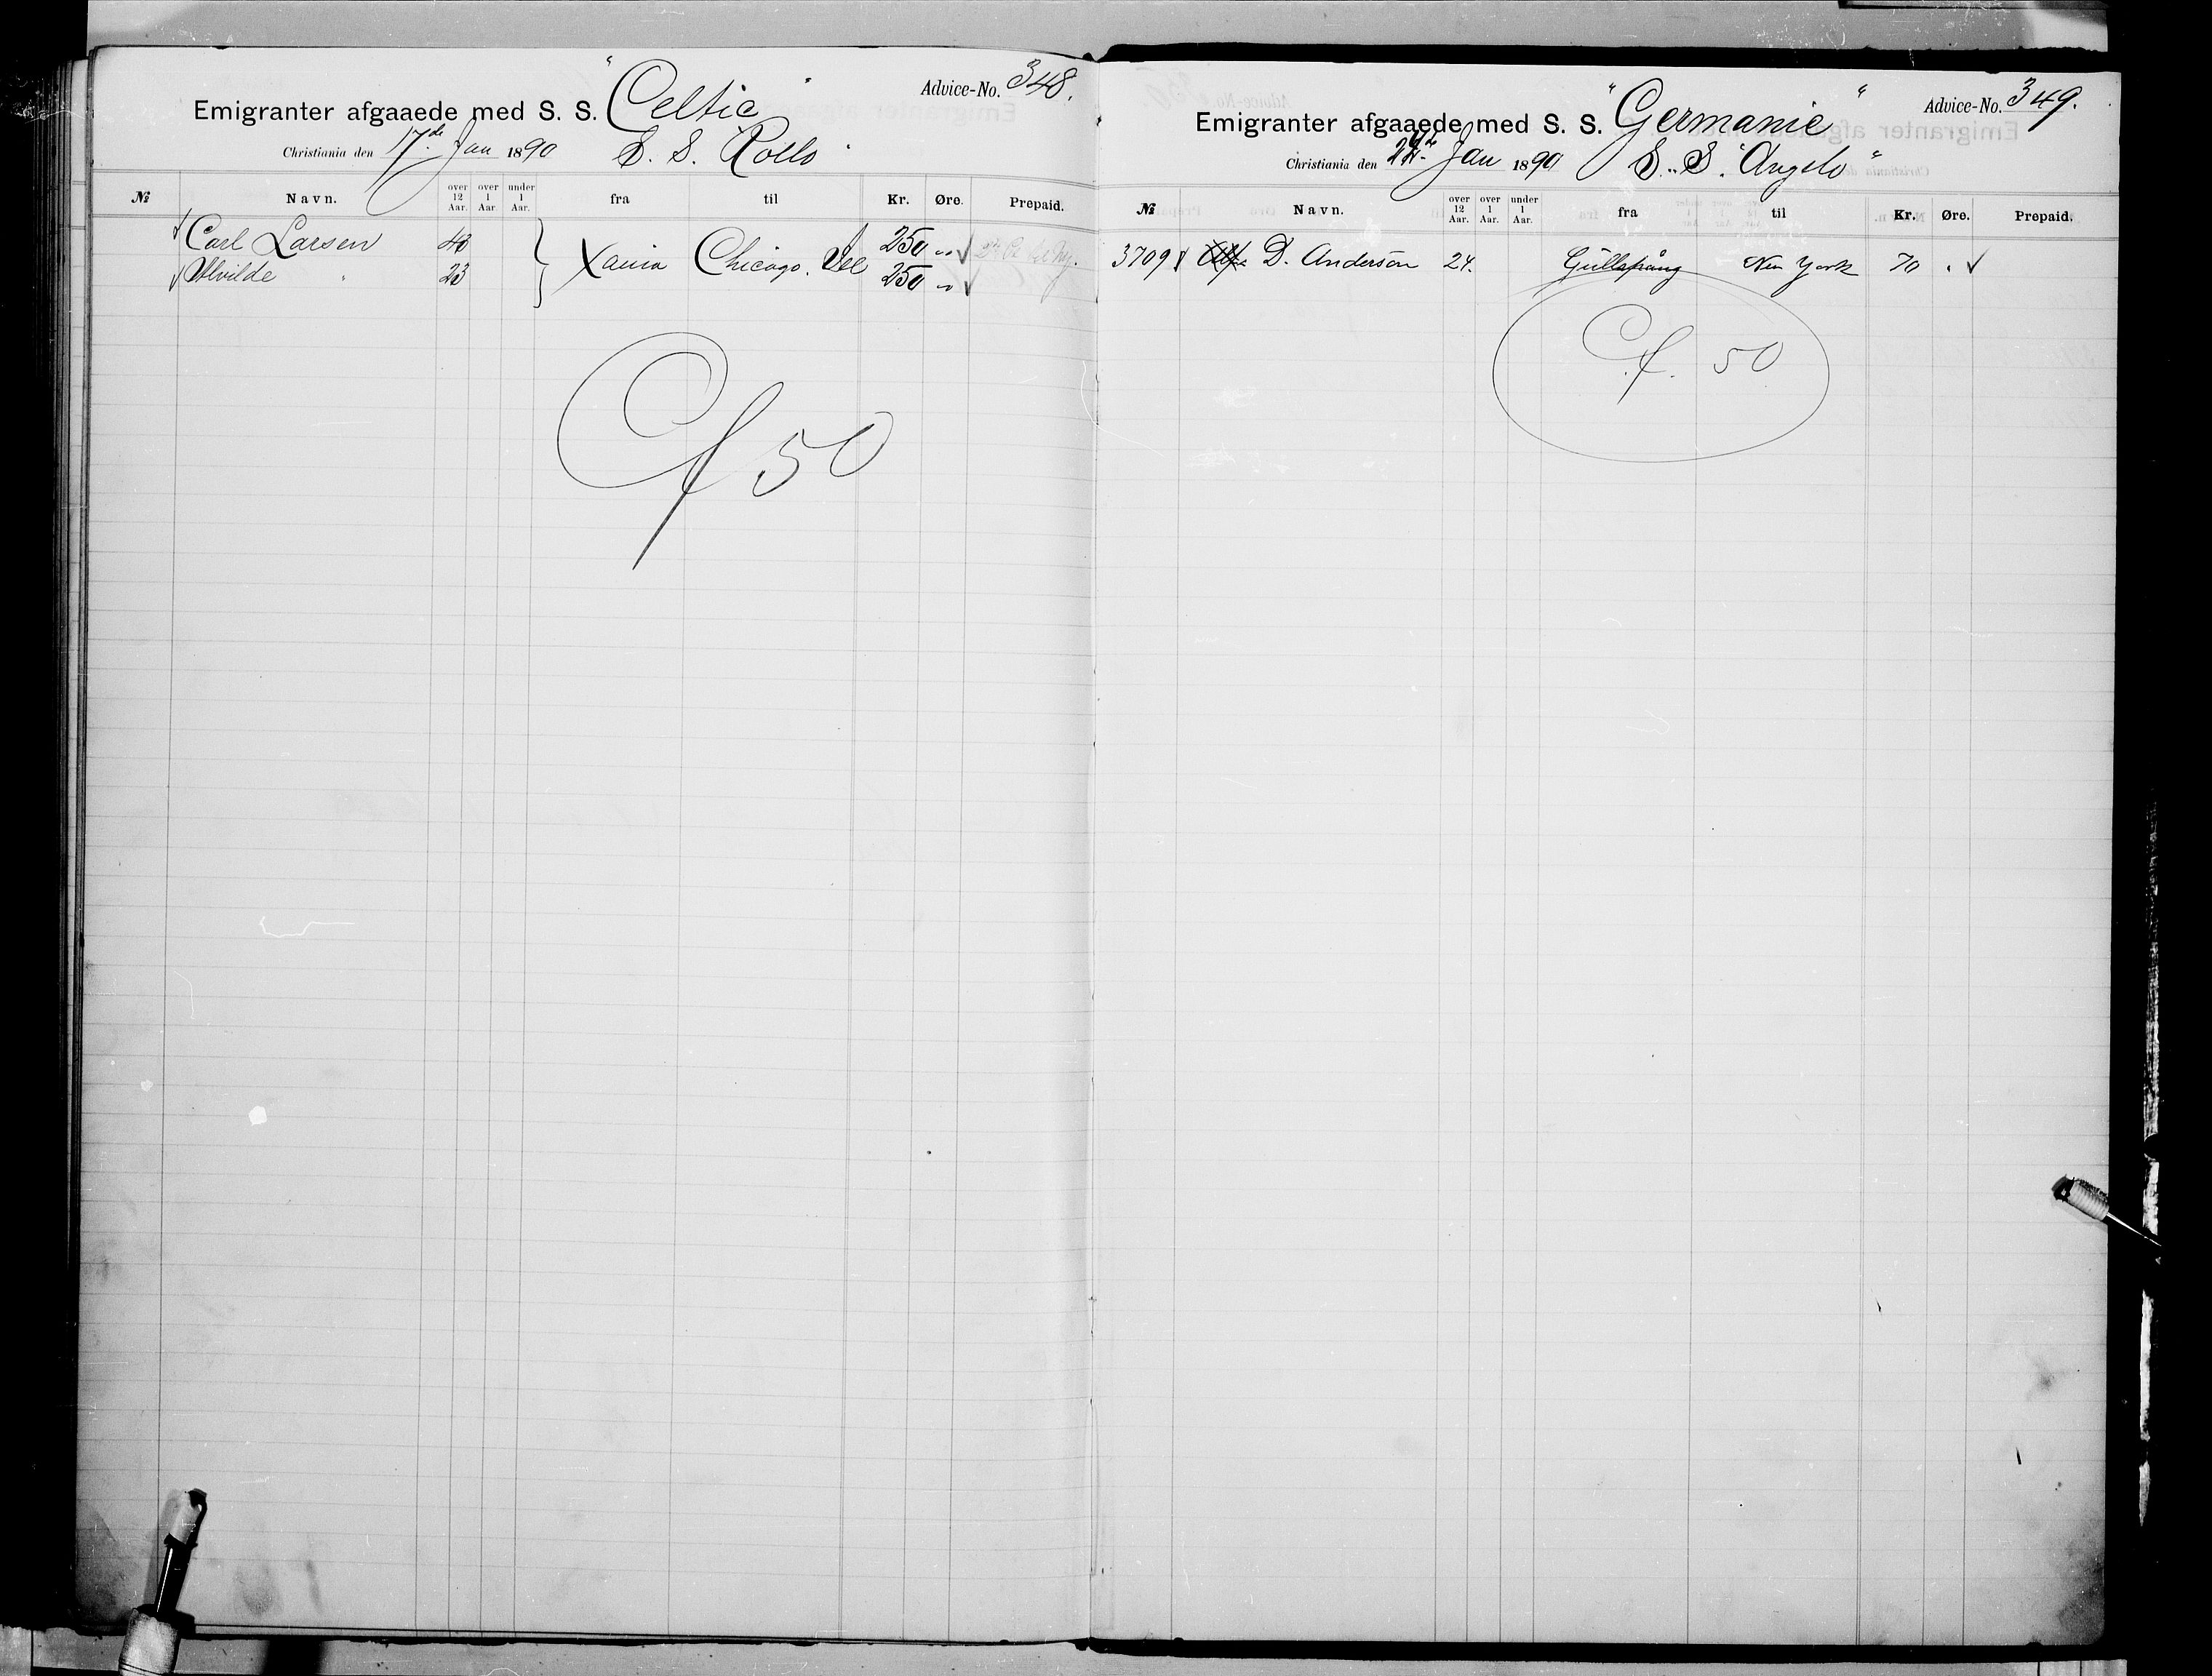 Advice-No. 348.
Emigranter afgaaede med S. S. "Celtic"
Christiania den 17de Jan 1890 S. S. "Rollo"
№ Navn. over 12 Aar. over 1 Aar. under 1 Aar. fra til Kr. Øre. Prepaid.
Carl Larsen 40 Xania Chicago. Ill 250 "
Alvilde " 23 250 "
Cf 50
Advice-No. 349.
Emigranter afgaaede med S. S. "Germanic"
Christiania den Jan 1890 S. S. "Angelo"
№ Navn. over 12 Aar. over 1 Aar. under 1 Aar. fra til Kr. Øre. Prepaid.
3709 D. Anderson 24. Gullspång New York 70 .
Cf. 50